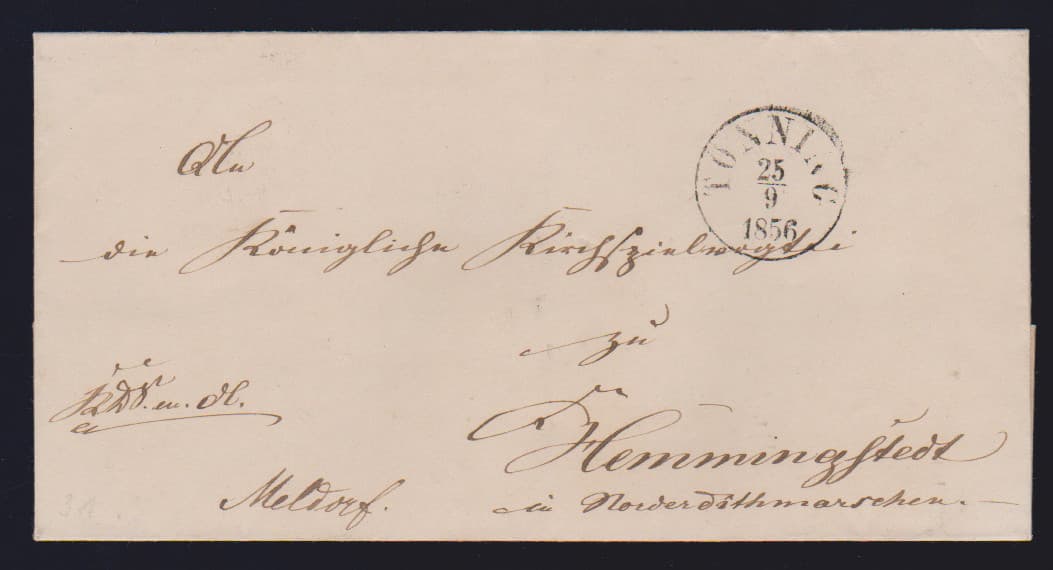 An
TÖNNING
25
9
1856
die Königliche Kirchspielvogtei
zu
Hemmingstedt
in Norderdithmarschen.
Meldorf.